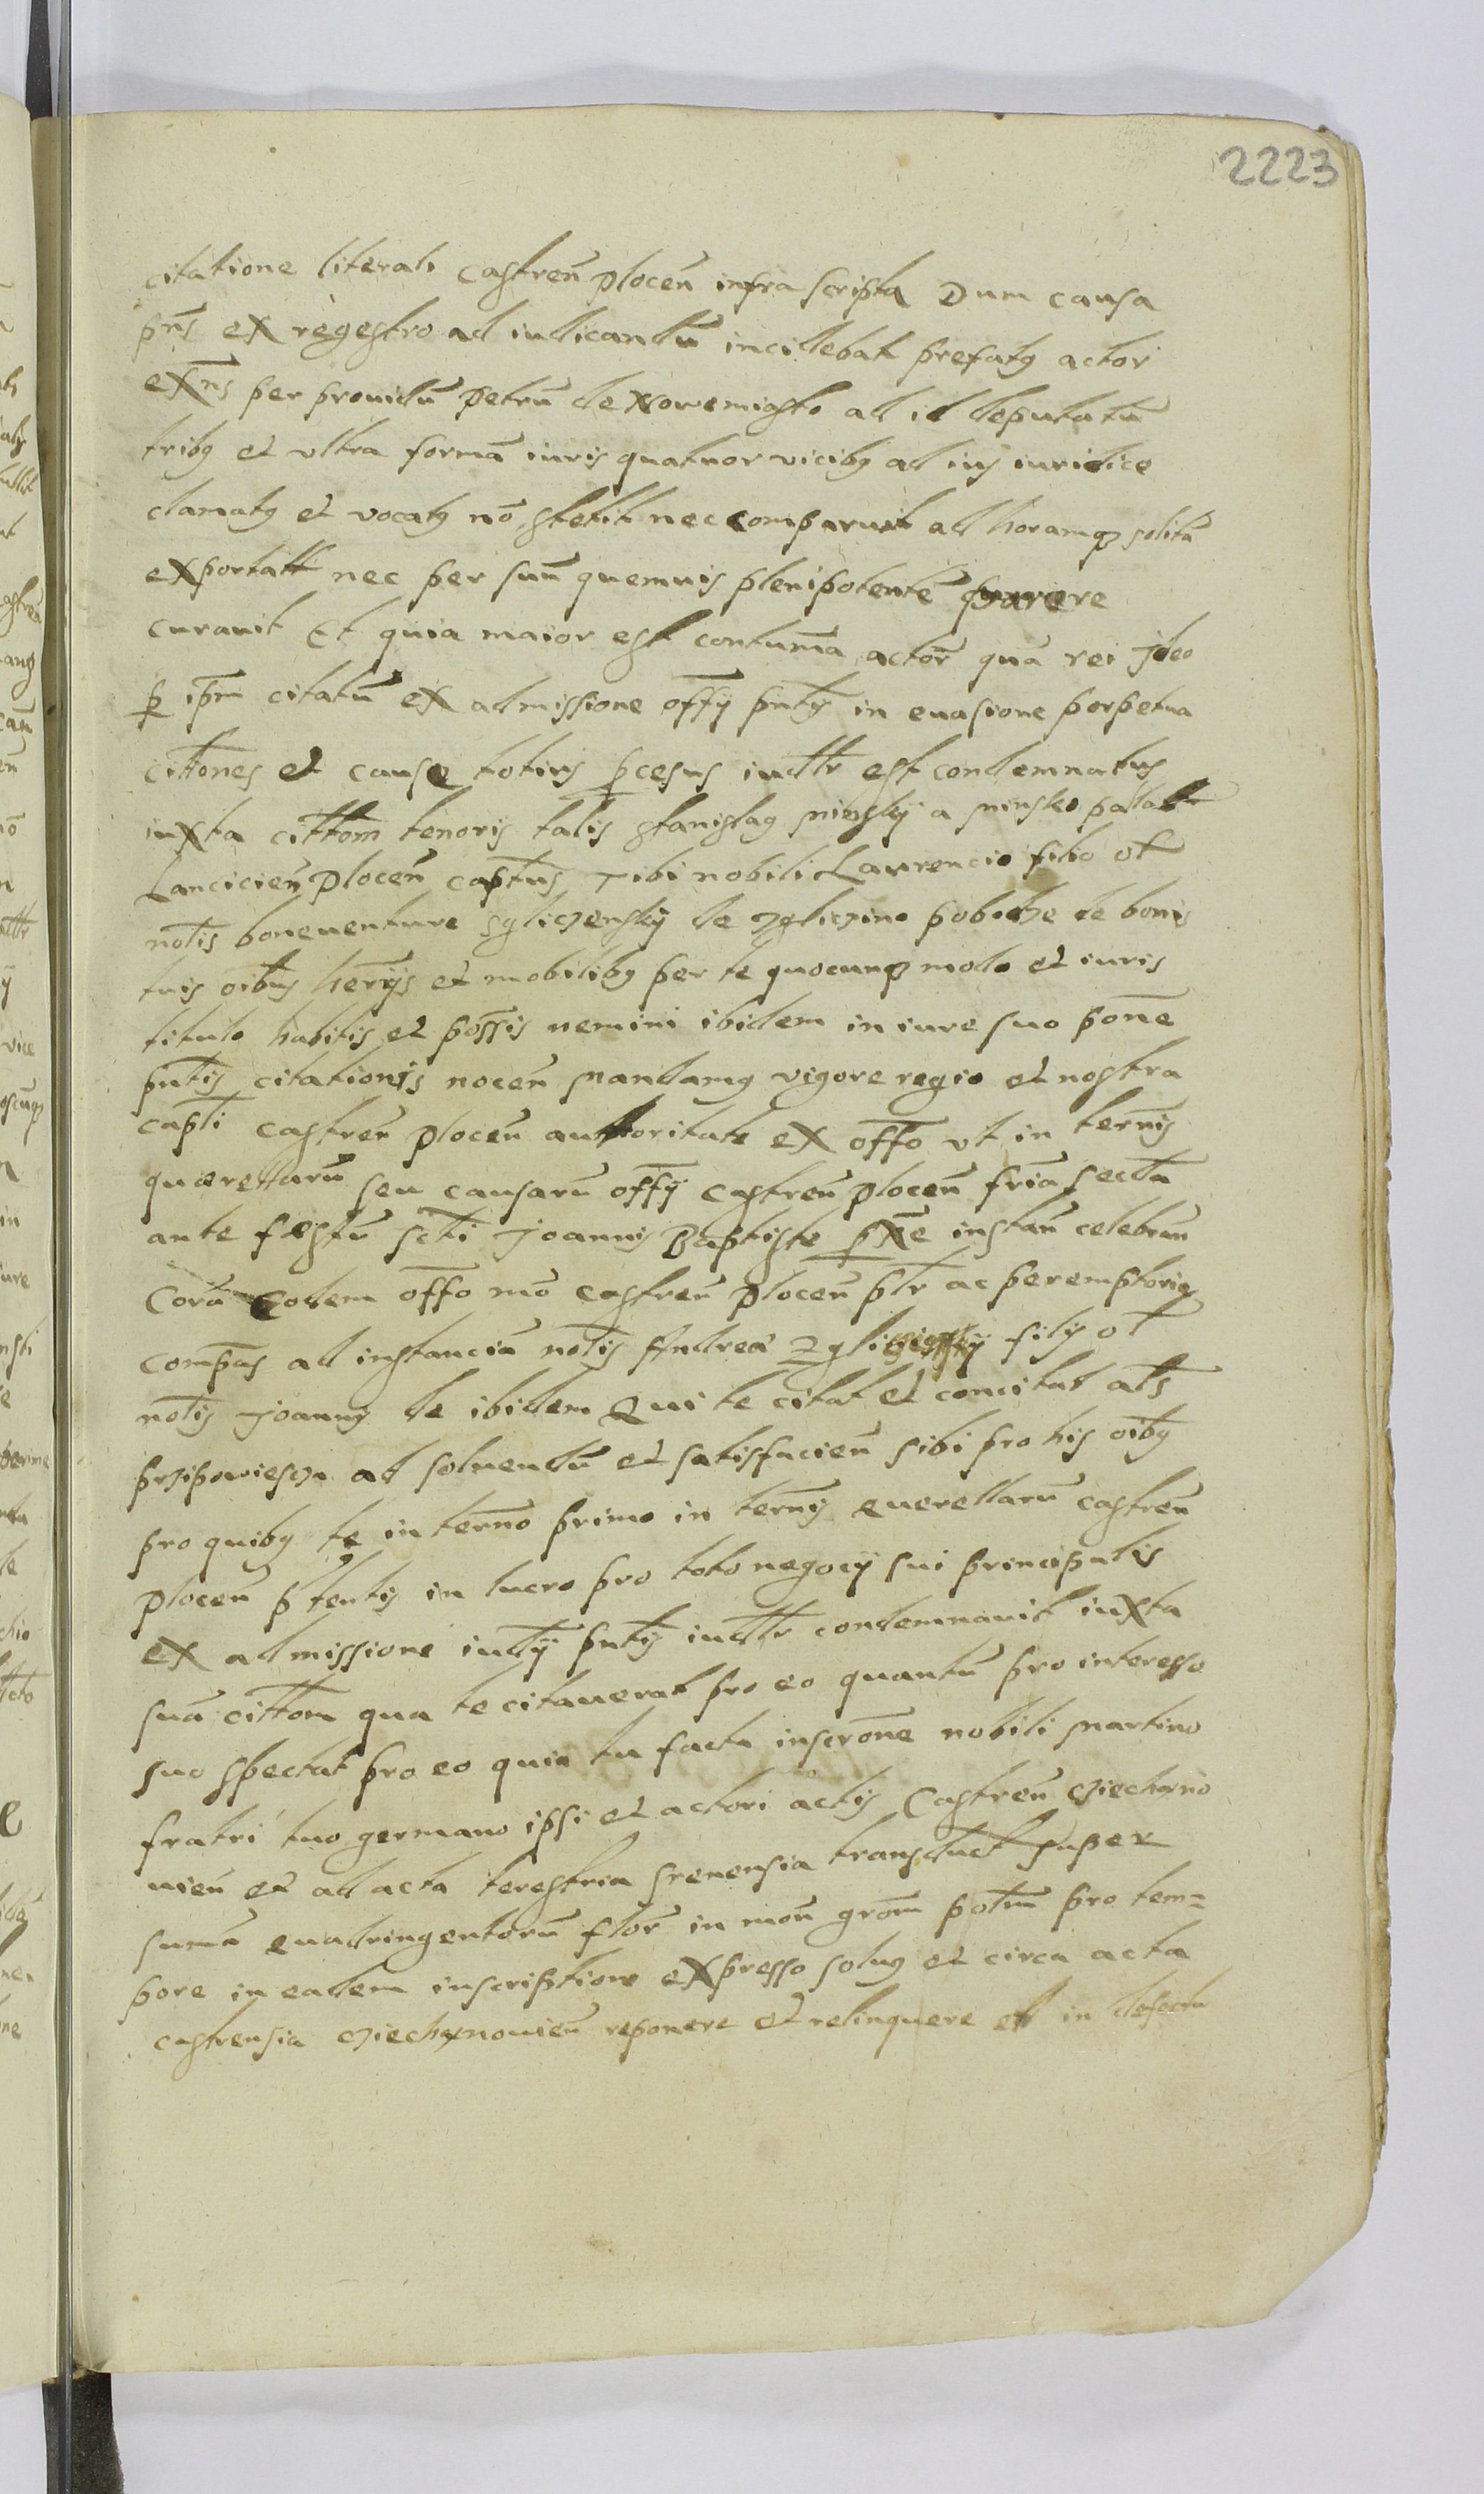 2223
citatione literali castreñ plocen̄ infra scripta Dum causa
pn̄s ex regestro ad iudicandū incidebat prefatꝯ actor
exn̄s per prouidū Petrū de Nowemiasto ad id deputatū
tribꝯ et vltra formā iuris quatuor vicibꝯ ad ius iuridice
clamatꝯ et vocatꝯ nō stetit nec comparuit ad horamqꝫ solitā
exportatt nec per suū quemuis plenipotentē
curauit Et quia maior est contuma͞ actor͞ quā rei Ideo
ꝑ ip̄m citatū ex admissione off̄ij pn̄tꝭ in euasione perpetua
citt̄ones et cause totius ꝓcesus iudltr̄ est condemnatus
iuxta citt̄om tenoris talis Stanislaꝯ Minsky a Minsko pallatt
Lancicien̄ Plocen̄ capt̄us Tibi nobili Laurencio filio ol̄
nol̄is boneuenture Sgliczensky de Zgliczino pobodze de bonis
tuis oīb̄us herr̄ijs et mobilibꝯ per te quocunqꝫ modo et iuris
titulo habitis et poss̄is nemini ibidem in iure suo pōne
pn̄tis citationis nocen̄ Mandamꝯ vigore regio et nostra
capt̄i castren̄ plocen̄ authoritate ex off̄o vt in termn̄s
quærellarū seu causarū off̄ij castren̄ plocen̄ fria͞ secda͞
ante festū Sct̄i Joannis Baptiste px̄e instan̄ celebran̄
Corā eodem off̄o nr̄o castren̄ plocen̄ pl̄r ac peremptorie
compa͞s ad instanciā nol̄is Andreæ filij ol̄
nol̄is Joannꝭ de ibidem Qui te citat et concitat al̄s
przipowiescza ad soluendū et satisfacien̄ sibi pro his oīb̄ꝯ
pro quibꝯ te in termn̄o primo in termn̄s querellarū castren̄
plocen̄ ꝑ tentis in lucro pro toto negocij sui principalis
ex admissione iudij̄ pn̄tꝭ iudltr̄ condemnauit iuxta
suā citt̄om qua te citauerat pro eo quantū pro interesse
suo spectat pro eo quia tu facta inscr̄one nobili Martino
fratri tuo germano ipsi et actori actis Castren̄ Cziechano
uien̄ et ad acta terestria Srenensia transduct super
sumā quadringentorū flor̄ in mon̄ gro͞m pol̄m pro tem=
pore in eadem inscriptione expresso soluꝯ et circa acta
castrensia Cziechanouien̄ reponere et relinquere et in defectu